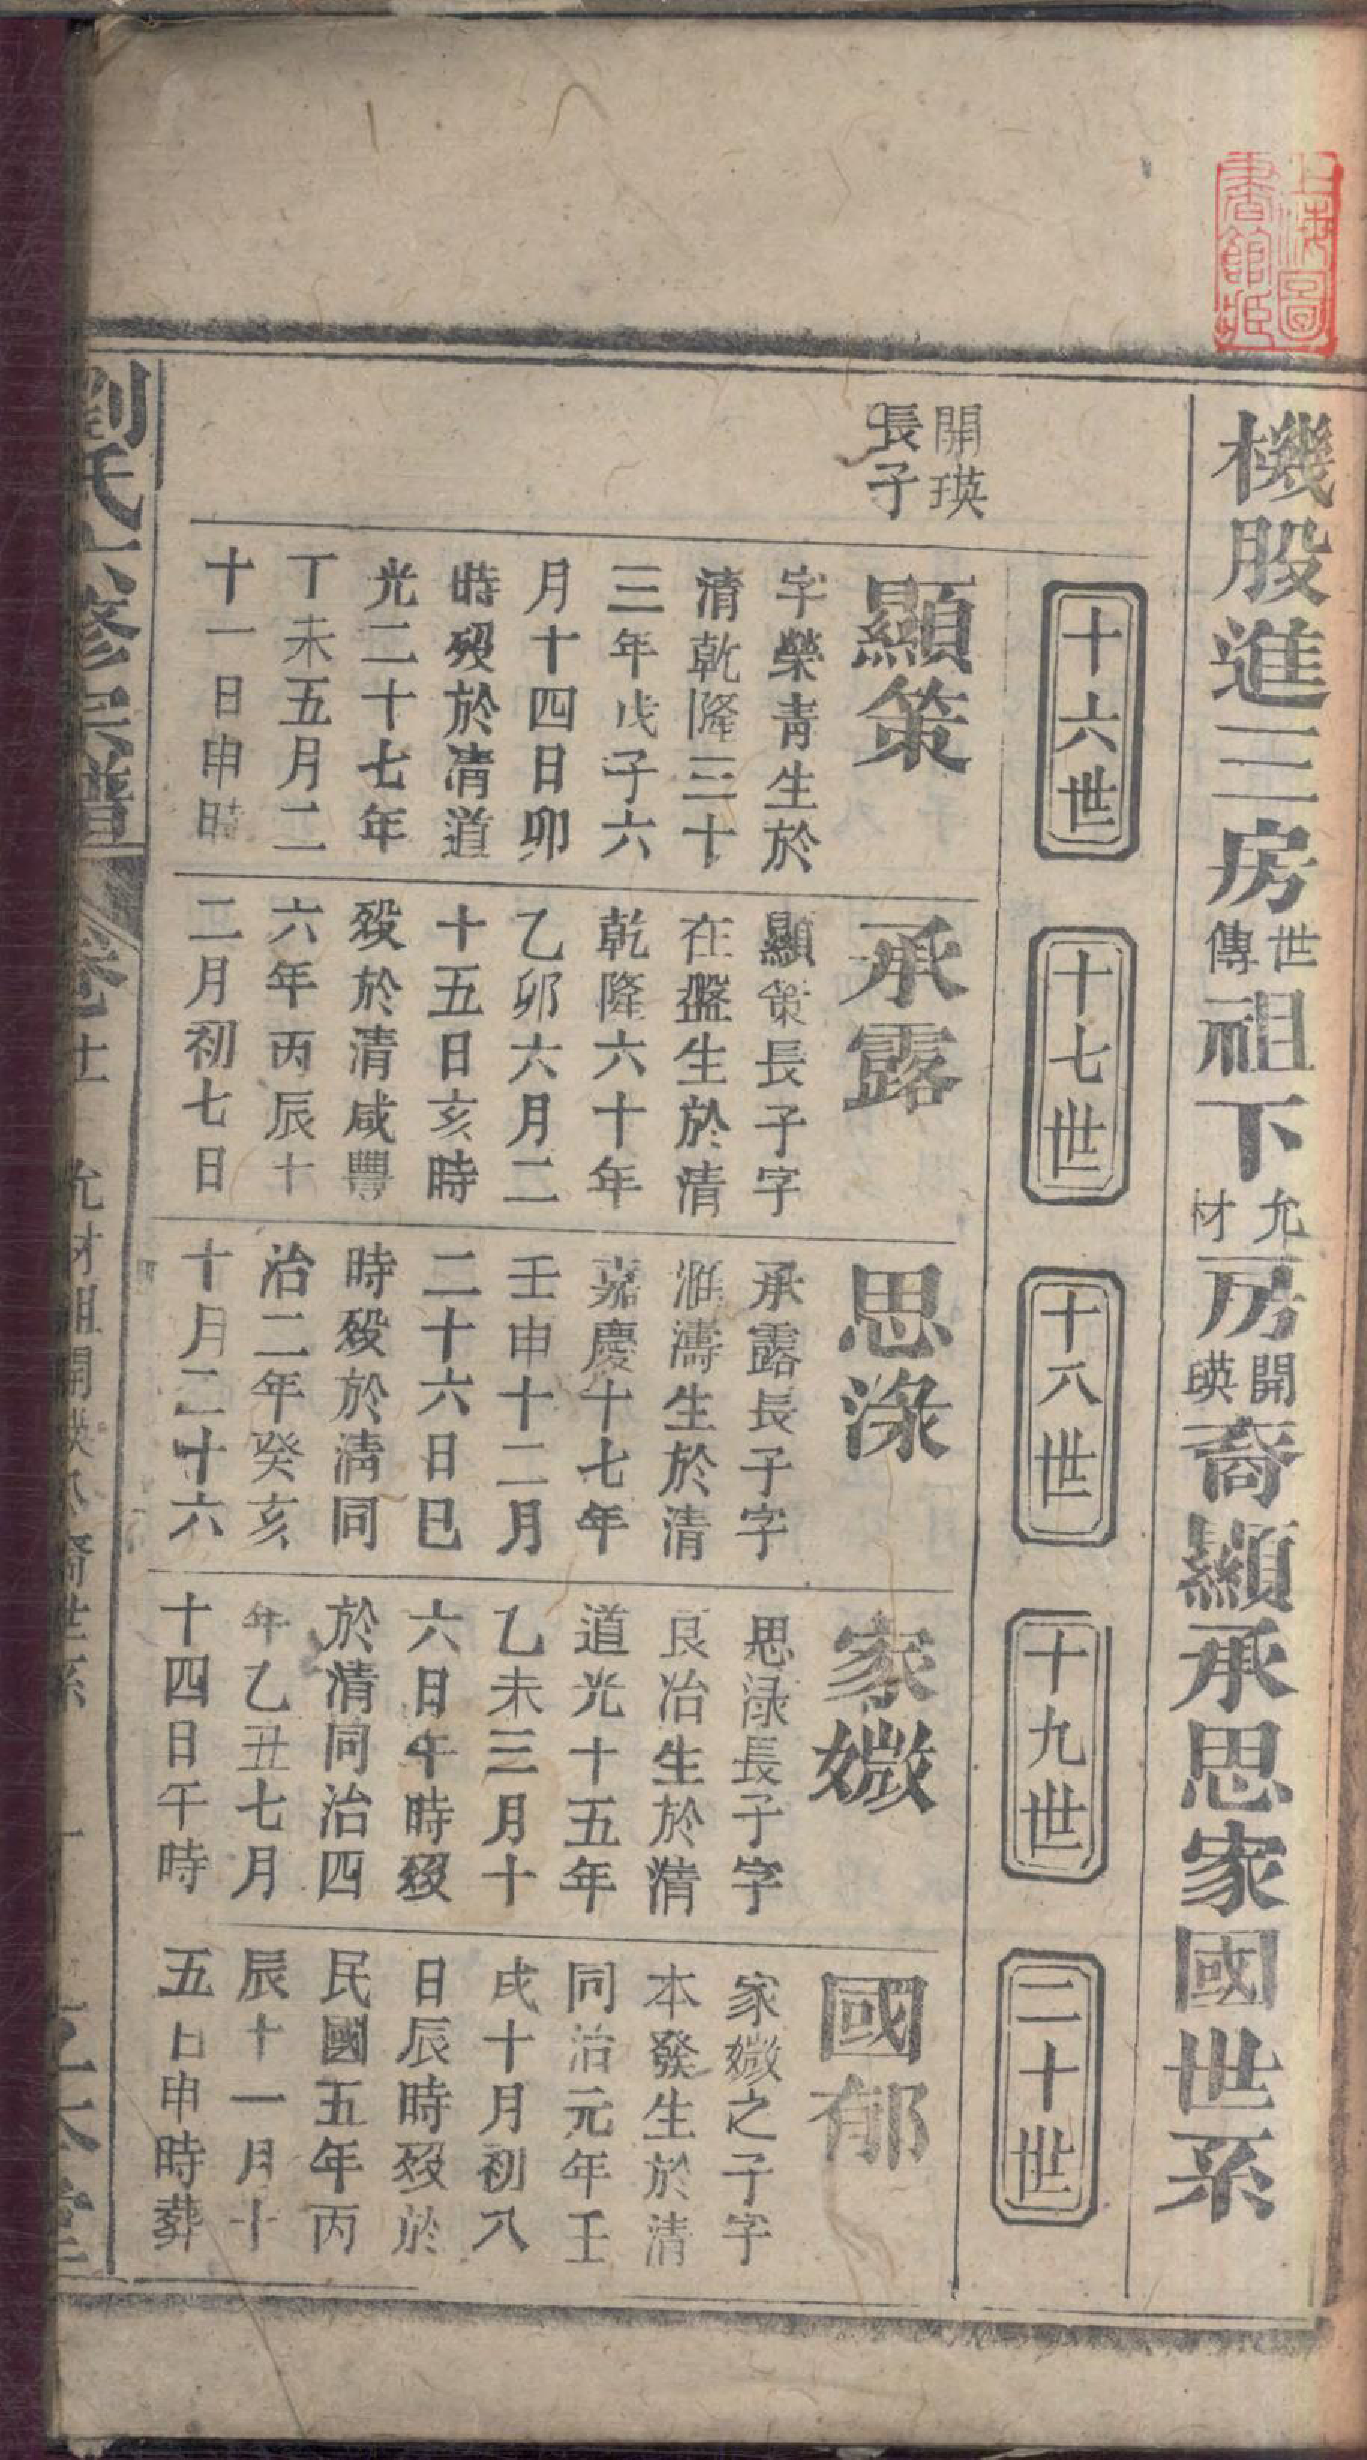 上海圖
書館藏
機股進三房世傳祖下允材房開瑛裔顯承思家國世系
十六世
十七世
十八世
十九世
二十世
開瑛
長子
顯策
字榮青生於
清乾隆三十
三年戊子六
月十四日卯
時歿於清道
光二十七年
丁未五月二
十一日申時
承露
顯策長子字
在盤生於清
乾隆六十年
乙卯六月二
十五日亥時
歿於清咸豐
六年丙辰十
二月初七日
思淥
承露長子字
濰濤生於清
嘉慶十七年
壬申十二月
二十六日巳
時歿於清同
治二年癸亥
十月二十六
家媺
思淥長子字
良冶生於清
道光十五年
乙未三月十
六日午時歿
於清同治四
年乙丑七月
十四日午時
國郁
家媺之子字
本發生於清
同治元年壬
戌十月初八
日辰時歿於
民國五年丙
辰十一月十
五日申時葬
劉氏六修宗譜
卷十一
允材祖開瑛公裔世系
一